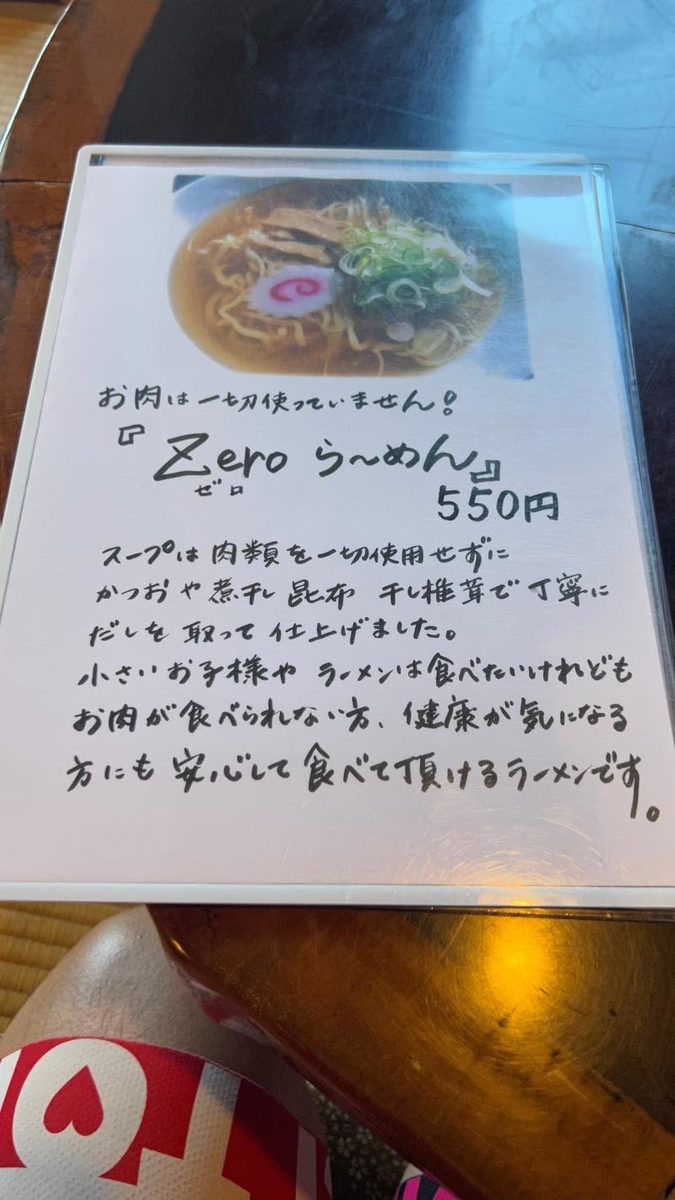 お肉は一切使っていません!
『Zero ら〜めん』
ゼロ
550円
スープは肉類を一切使用せずに
かつおや煮干し昆布 干し椎茸で丁寧に
だしを取って仕上げました。
小さいお子様や ラーメンは食べたいけれども
お肉が食べられない方、健康が気になる
方にも安心して食べて頂けるラーメンです。